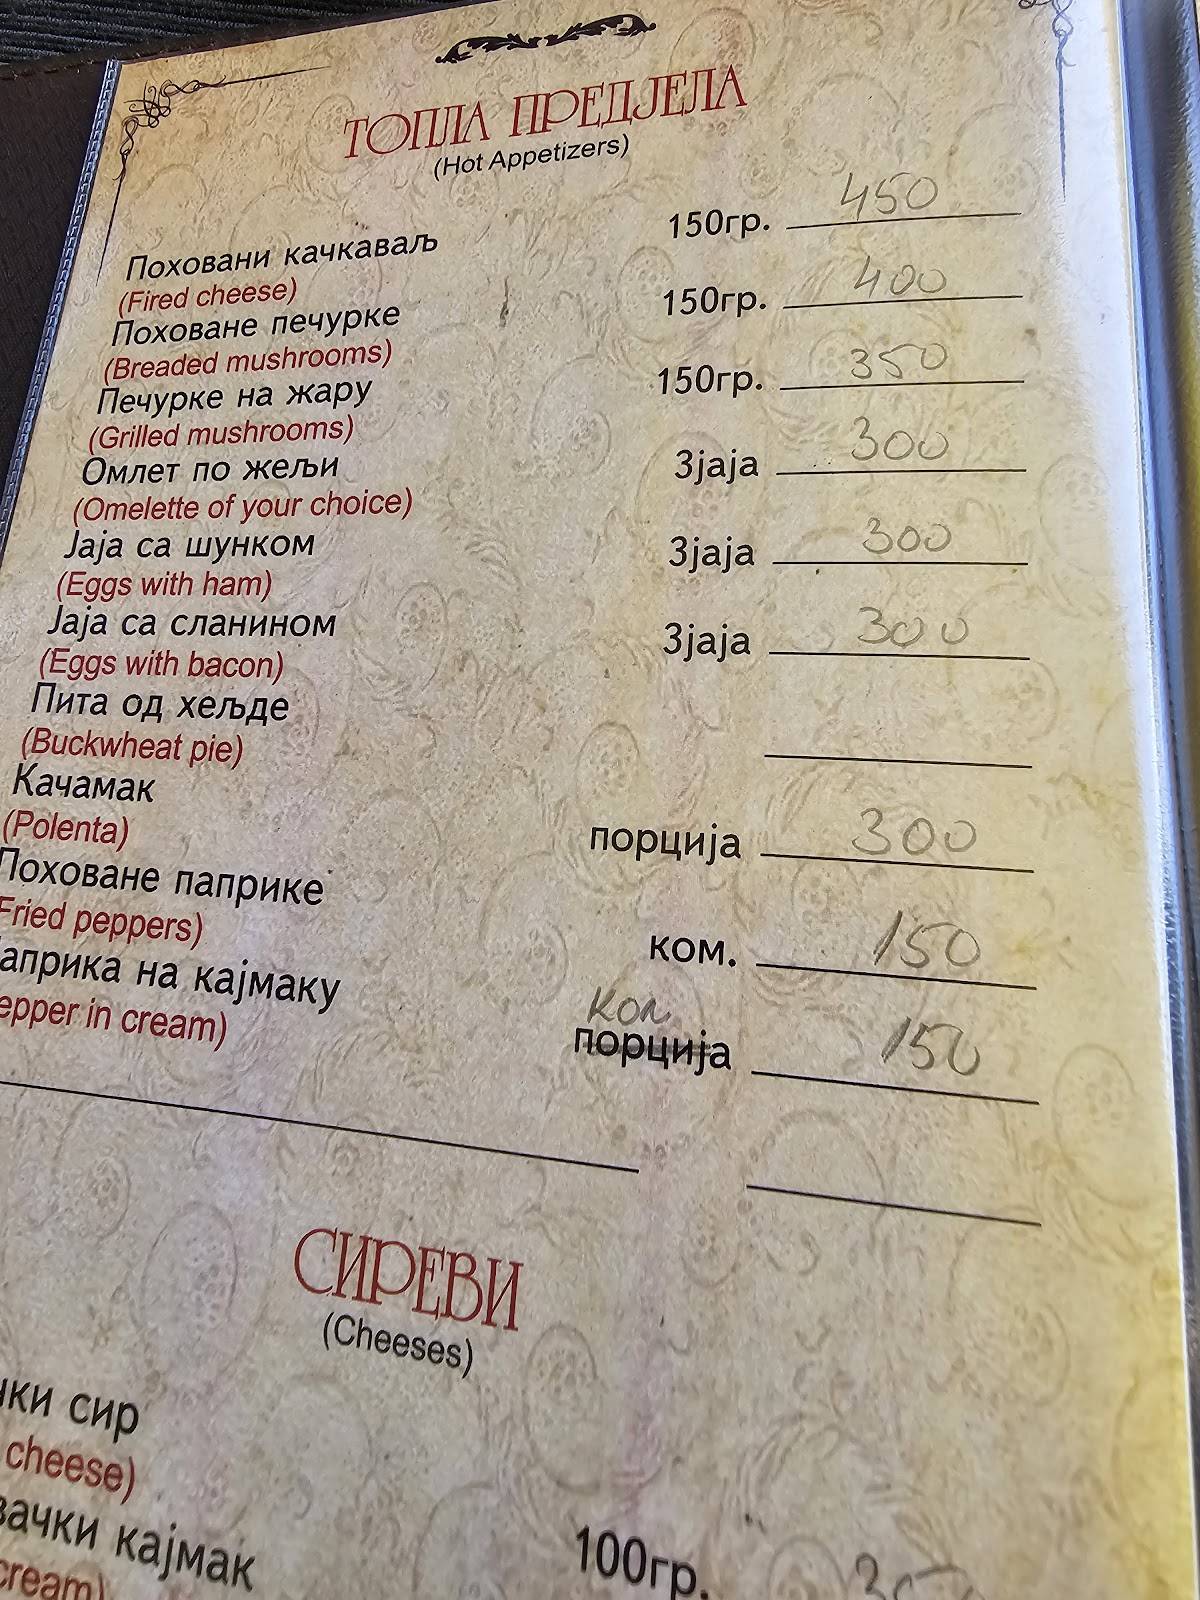 ТОПЛА ПРЕДЈЕЛА
(Hot Appetizers)
Поховани качкаваљ 150гр. 450
(Fired cheese)
Поховане печурке 150гр. 400
(Breaded mushrooms)
Печурке на жару 150гр. 350
(Grilled mushrooms)
Омлет по жељи 3јаја 300
(Omelette of your choice)
Јаја са шунком 3јаја 300
(Eggs with ham)
Јаја са сланином 3јаја 300
(Eggs with bacon)
Пита од хељде
(Buckwheat pie)
Качамак порција 300
(Polenta)
Поховане паприке ком. 150
Fried peppers)
ком
априка на кајмаку порција 150
epper in cream)
СИРЕВИ
(Cheeses)
чки сир
cheese)
вачки кајмак 100гр.
cream)